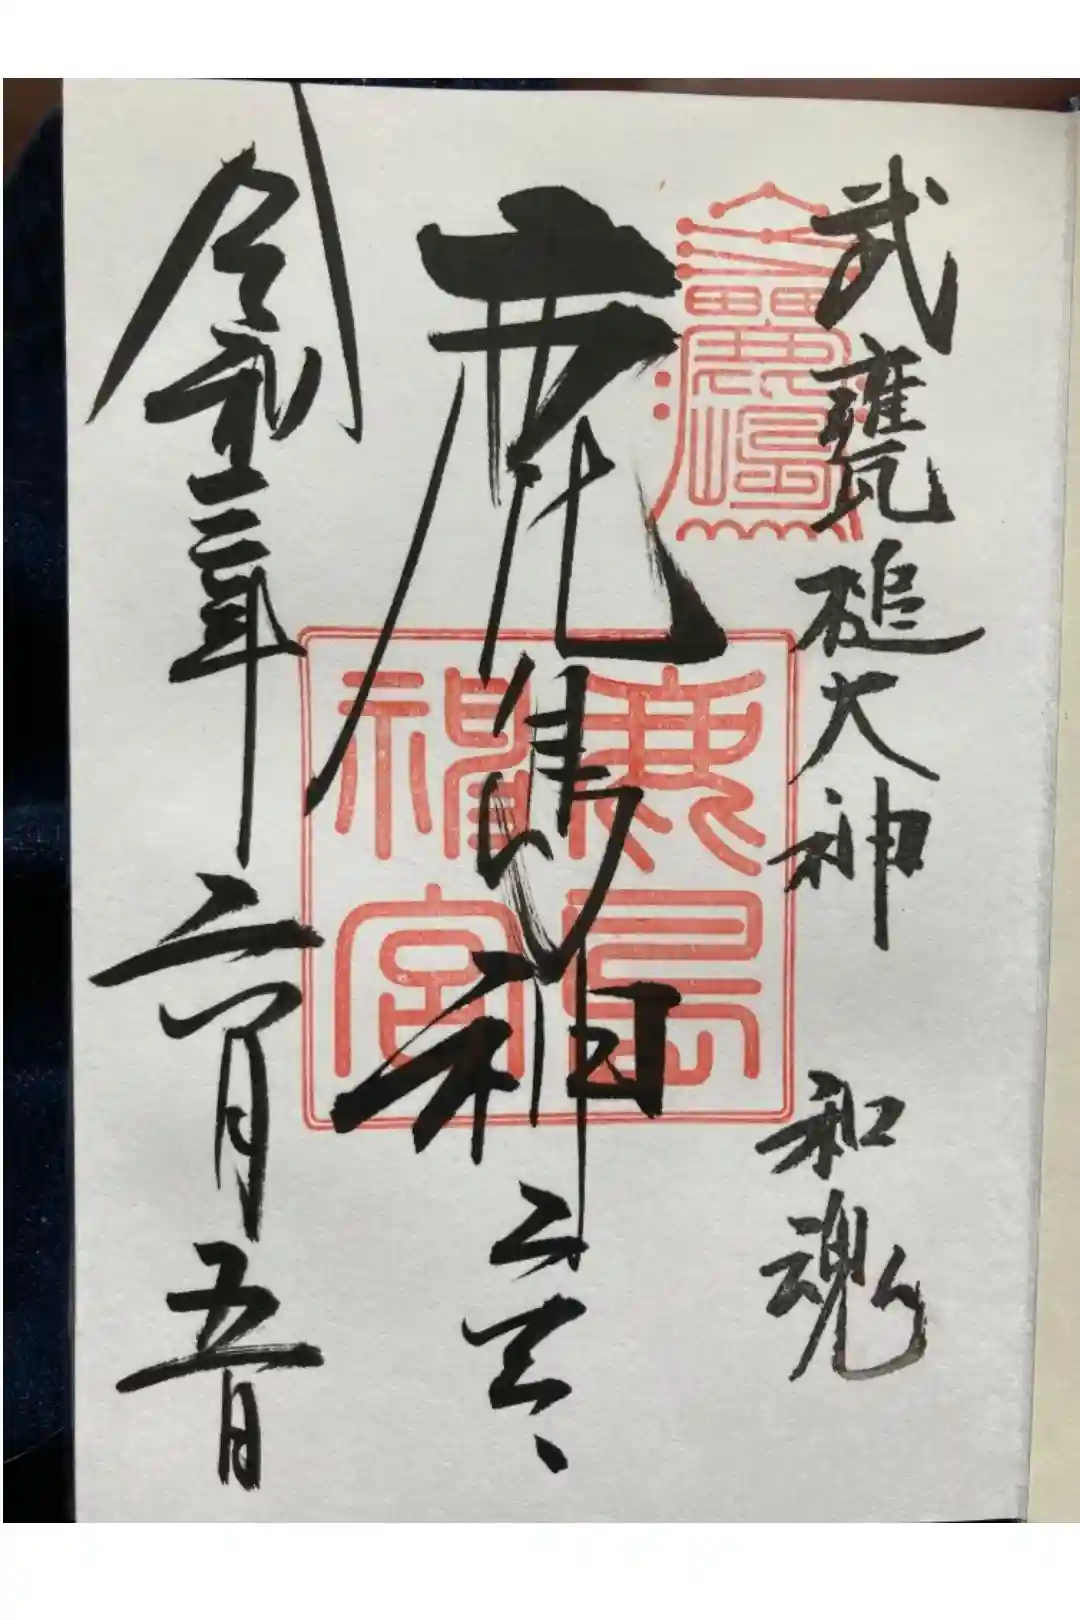 武甕槌大神 和魂
鹿嶋
鹿嶋神宮
鹿島神宮
令和三年二月五日